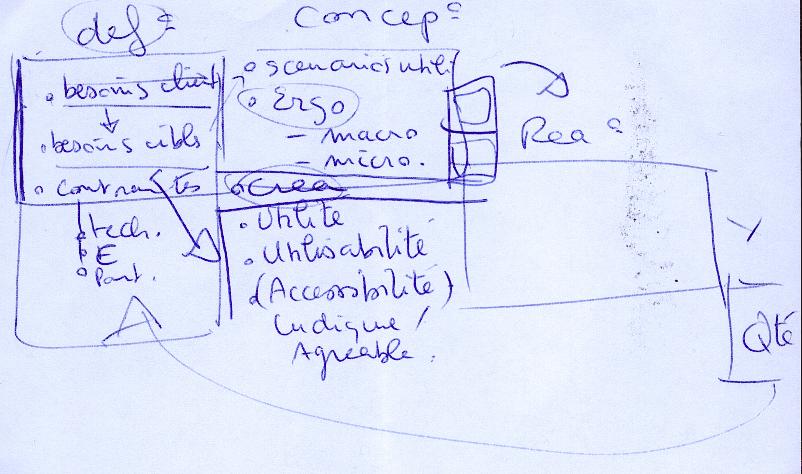 defº
concepº
• besoins client
• besoins cibls
• contraintes
• tech.
• E
• Part.
• scenarios utili
• Ergo
– macro
– micro.
• Crea
• Utilité
• Utilisabilité
(Accessibilité)
Ludique /
Agréable.
Reaº
Qté